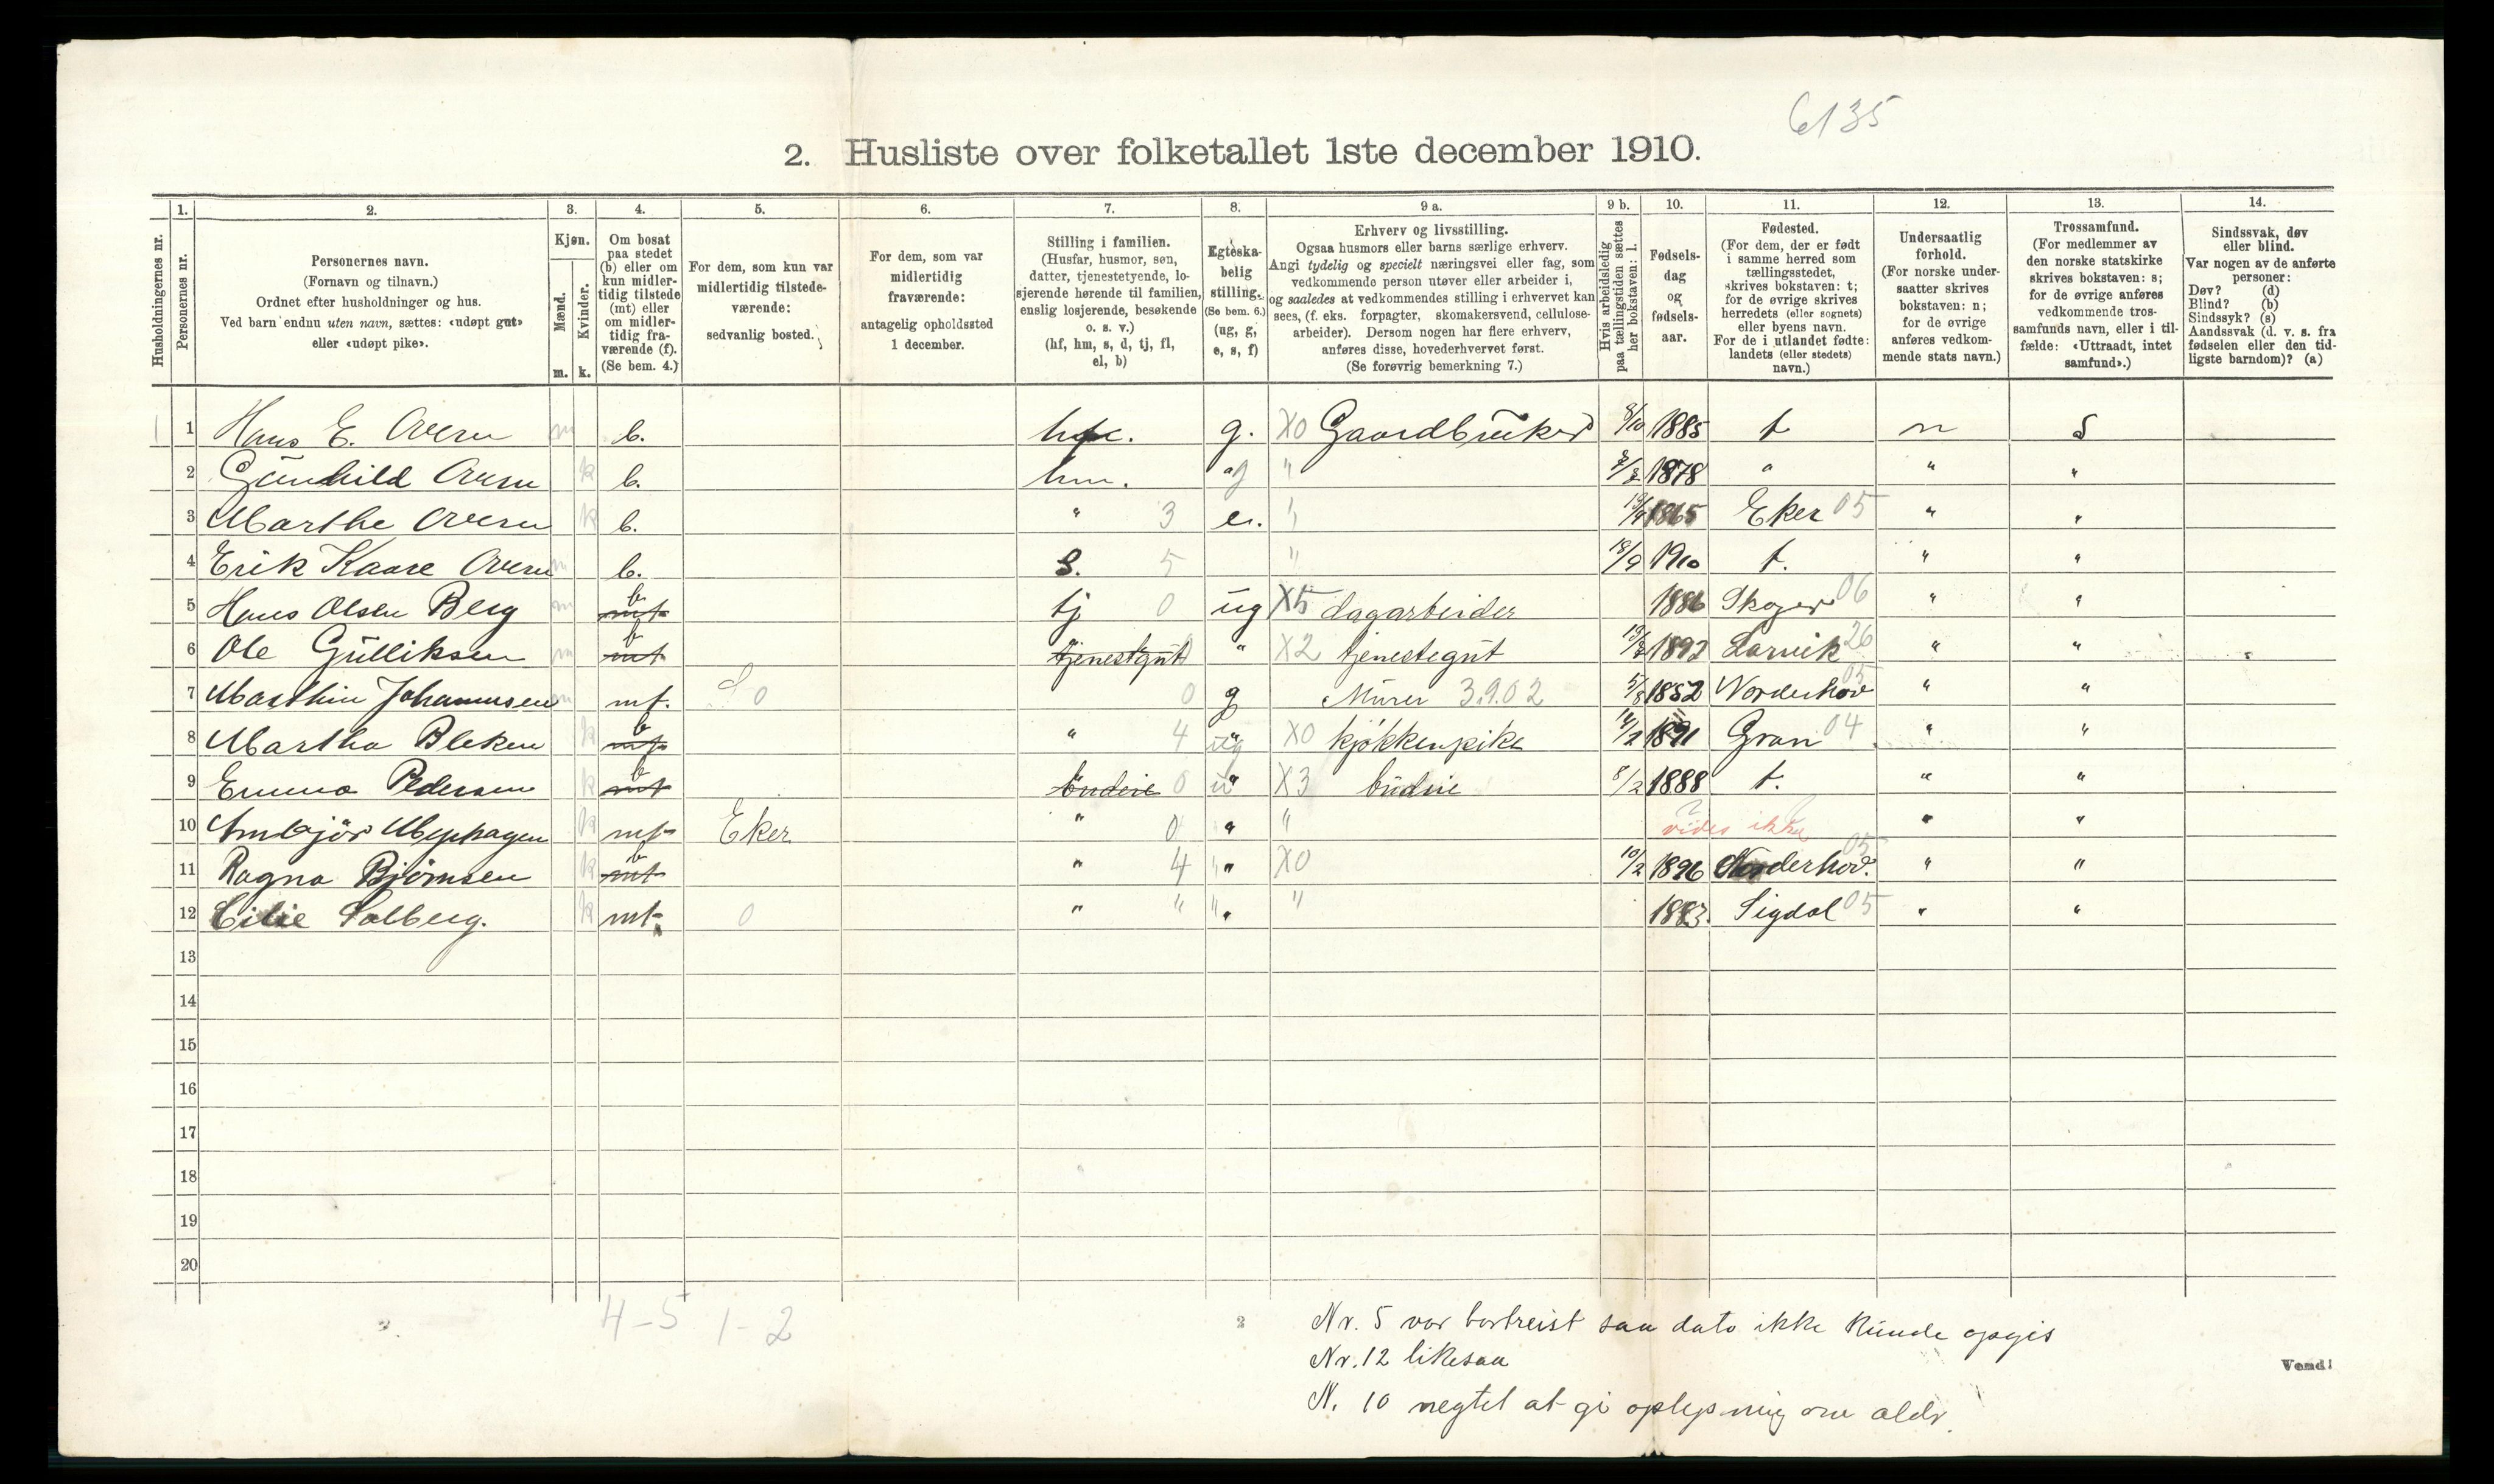 6135
2. Husliste over folketallet 1ste december 1910.
Husholdningernes nr.
1.
Personernes nr.
2.
Personernes navn.
(Fornavn og tilnavn.)
Ordnet efter husholdninger og hus.
Ved barn endnu uten navn, sættes: «udøpt gut»
eller «udøpt pike».
3.
Kjøn.
Mænd.
Kvinder.
m. k.
4.
Om bosat
paa stedet
(b) eller om
kun midler-
tidig tilstede
(mt) eller
om midler-
tidig fra-
værende (f).
(Se bem. 4.)
5.
For dem, som kun var
midlertidig tilstede-
værende:
sedvanlig bosted.
6.
For dem, som var
midlertidig
fraværende:
antagelig opholdssted
1 december.
7.
Stilling i familien.
(Husfar, husmor, søn,
datter, tjenestetyende, lo-
sjerende hørende til familien,
enslig losjerende, besøkende
o. s. v.)
(hf, hm, s, d, tj, fl,
el, b)
8.
Egteska-
belig
stilling.
(Se bem. 6.)
(ug, g,
e, s, f)
9 a.
Erhverv og livsstilling.
Ogsaa husmors eller barns særlige erhverv.
Angi tydelig og specielt næringsvei eller fag, som
vedkommende person utøver eller arbeider i,
og saaledes at vedkommendes stilling i erhvervet kan
sees, (f. eks. forpagter, skomakersvend, cellulose-
arbeider). Dersom nogen har flere erhverv,
anføres disse, hovederhvervet først.
(Se forøvrig bemerkning 7.)
9 b.
Hvis arbeidsledig
paa tællingstiden sættes
her bokstaven: l.
10.
Fødsels-
dag
og
fødsels-
aar.
11.
Fødested.
(For dem, der er født
i samme herred som
tællingsstedet,
skrives bokstaven: t;
for de øvrige skrives
herredets (eller sognets)
eller byens navn.
For de i utlandet fødte:
landets (eller stedets)
navn.)
12.
Undersaatlig
forhold.
(For norske under-
saatter skrives
bokstaven: n;
for de øvrige
anføres vedkom-
mende stats navn.)
13.
Trossamfund.
(For medlemmer av
den norske statskirke
skrives bokstaven: s;
for de øvrige anføres
vedkommende tros-
samfunds navn, eller i til-
fælde: «Uttraadt, intet
samfund».)
14.
Sindssvak, døv
eller blind.
Var nogen av de anførte
personer:
Døv? (d)
Blind? (b)
Sindssyk? (s)
Aandssvak (d. v. s. fra
fødselen eller den tid-
ligste barndom)? (a)
1 1 Hans E. Overn m b. g. X0 Gaardbruker 8/10 1885 t n s
2 Gunhild Overn k b. hm. g " 1878 " " "
3 Marthe Overn k b. " 3 e. " 1865 Eker 05 " "
4 Erik Kaare Overn m b. S. 5 " 18/9 1910 t. " "
5 Hans Olsen Berg m mt b tj 0 ug X5 dagarbeider 1886 Skoger 06 " "
6 Ole Gulliksen m mt b tjenestgut 0 " X2 tjenestegut 1892 Larvik 26 " "
7 Marthin Johannesen m mt. 0 0 g Murer 3.9.02 5/8 1852 Norderhov 05 " "
8 Martha Bleken k mt b " 4 ug X0 kjøkkenpike 14/2 1891 Gran 04 " "
9 Emma Pedersen k mt b budeie 0 " X3 budeie 8/2 1888 t. " "
10 k mt Eker " 0 " " vides ikke " "
11 Ragna Bjørnsen k mt b " 4 " X0 10/2 1896 Norderhov. 05 " "
12 Cilie Solberg. k mt 0 " " " " 1883. Sigdal 05 " "
13
14
15
16
17
18
19
20
4-5 1-2
2
Nr. 5 var bortreist saa dato ikke kunde opgis
Nr. 12 likesaa
N. 10 negtet at gi oplysning om alder
Vend!